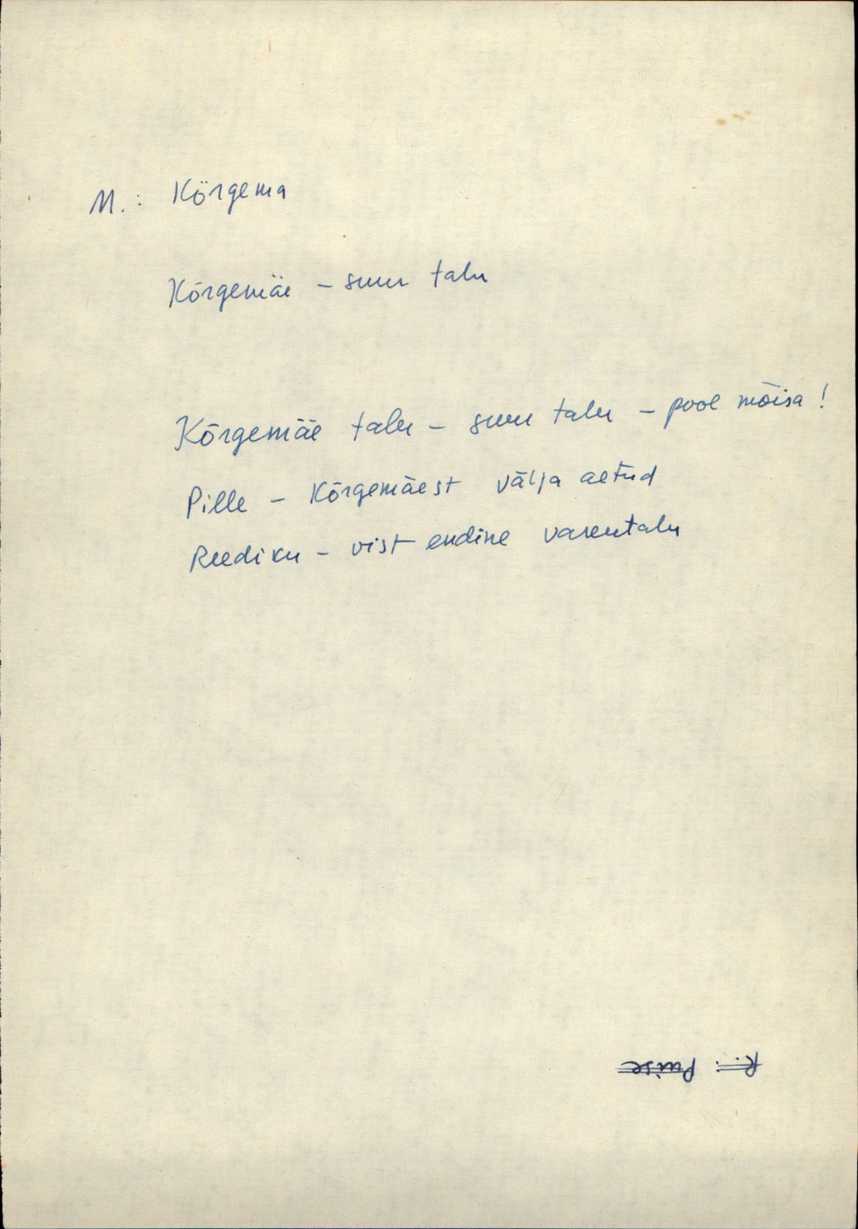 M.: Kõrgema
Kõrgemäe – suur talu
Kõrgemäe talu – suur talu – pool mõisa!
Pille – Kõrgemäest välja aetud
Reediku – vist endine varentalu
R.: Puise